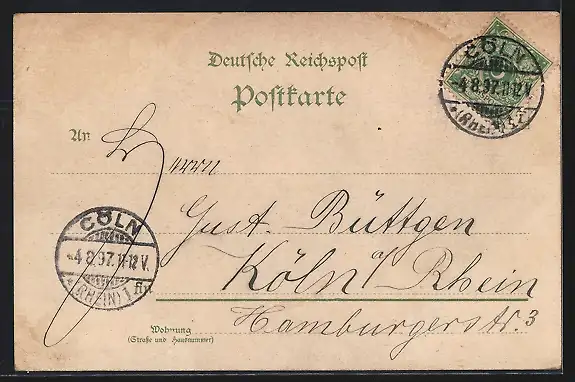 Deutsche Reichspost
Postkarte
CÖLN
4.8.97.11-12V.
(RHEIN)
An
Herrn
Gust. Büttgen
CÖLN
4.8.97.11-12V.
(RHEIN) 1
Köln a/ Rhein
Hamburgerstr. 3
Wohnung
(Straße und Hausnummer)